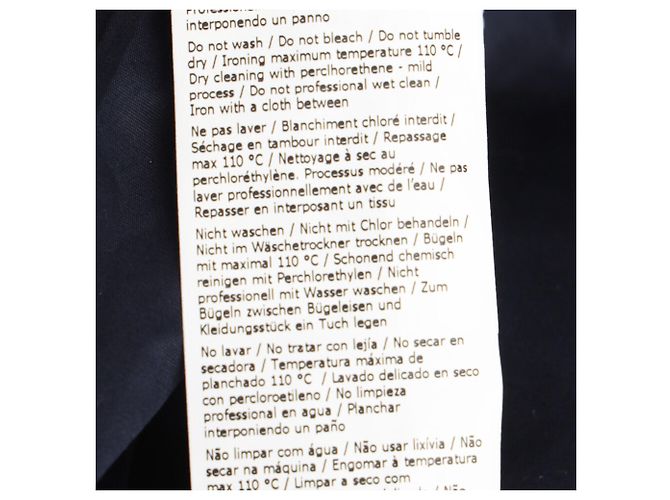 interponendo un panno
Do not wash / Do not bleach / Do not tumble
dry / Ironing maximum temperature 110 °C /
Dry cleaning with perclhorethene - mild
process / Do not professional wet clean /
Iron with a cloth between
Ne pas laver / Blanchiment chloré interdit /
Séchage en tambour interdit / Repassage
max 110 °C / Nettoyage à sec au
perchloréthylène. Processus modéré / Ne pas
laver professionnellement avec de l'eau /
Repasser en interposant un tissu
Nicht waschen / Nicht mit Chlor behandeln /
Nicht im Wäschetrockner trocknen / Bügeln
mit maximal 110 °C / Schonend chemisch
reinigen mit Perchlorethylen / Nicht
professionell mit Wasser waschen / Zum
Bügeln zwischen Bügeleisen und
Kleidungsstück ein Tuch legen
No lavar / No tratar con lejía / No secar en
secadora / Temperatura máxima de
planchado 110 °C / Lavado delicado en seco
con percloroetileno / No limpieza
professional en agua / Planchar
interponiendo un paño
Não limpar com água / Não usar lixívia / Não
secar na máquina / Engomar à temperatura
max 110 °C / Limpar a seco com